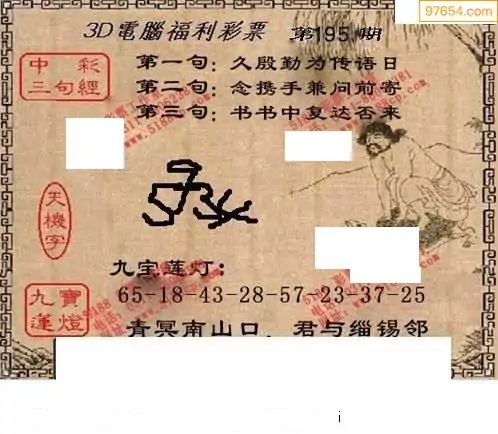 97654.com
3D電腦福利彩票 第195期
中彩
三句經
第一句：久殷勤为传语日
第二句：念携手兼问前寄
第三句：书书中复达否来
天機字
九宝莲灯：
65-18-43-28-57-23-37-25
九寶
蓮燈
青冥南山口，君与缁锡邻
i